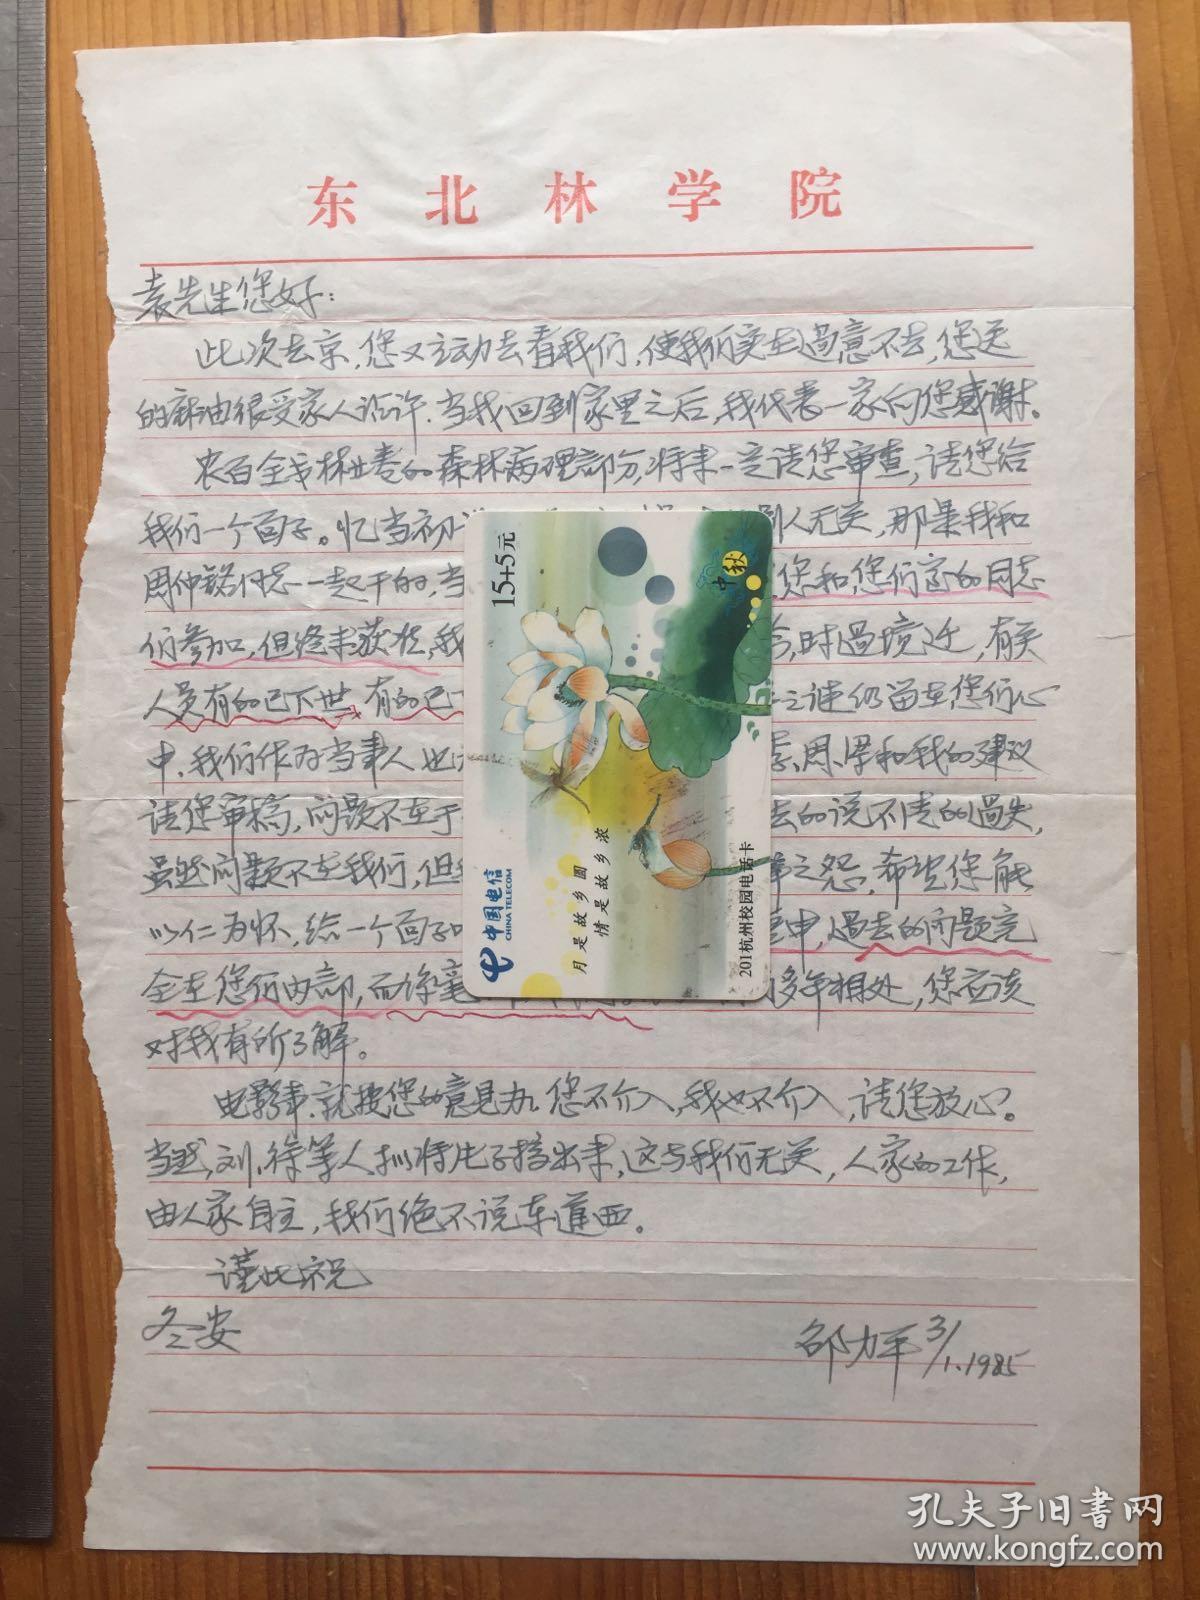 东北林学院
袁先生您好：
此次去京，您又主动去看我们，使我们实在过意不去，您送
的麻油很受家人讬许．当我回到家里之后，我代表一家向您感谢。
农百全书林业卷的森林病理部分，将来一定请您审查，请您给
我们一个面子。忆当初 别人无关，那是我和
周仲铭 一起干的，当 您和您们室的同志
们参加，但终未获 ，我 ，时过境迁，有关
人员有的已下世，有的已 之谜仍留在您们心
中．我们作为当事人也 、周、景和我的建议
请您审稿，问题不在于 去的说不清的过失，
虽然问题不在我们，但 之怨．希望您能
以仁为怀，给一个面子 中，过去的问题完
全在您们内部，而 毫 多年相处，您应该
对我有所了解。
电影事，就按您的意见办．您不介入，我也不介入，请您放心。
当然，刘、徐等人拟将片子接出来，这与我们无关，人家的工作，
由人家自主，我们绝不说东道西。
谨此祝
冬安
邵力平 3/1.1985
15+5元
中秋
中国电信
CHINA TELECOM
月是故乡圆
情是故乡浓
201杭州校园电话卡
孔夫子旧书网
www.kongfz.com